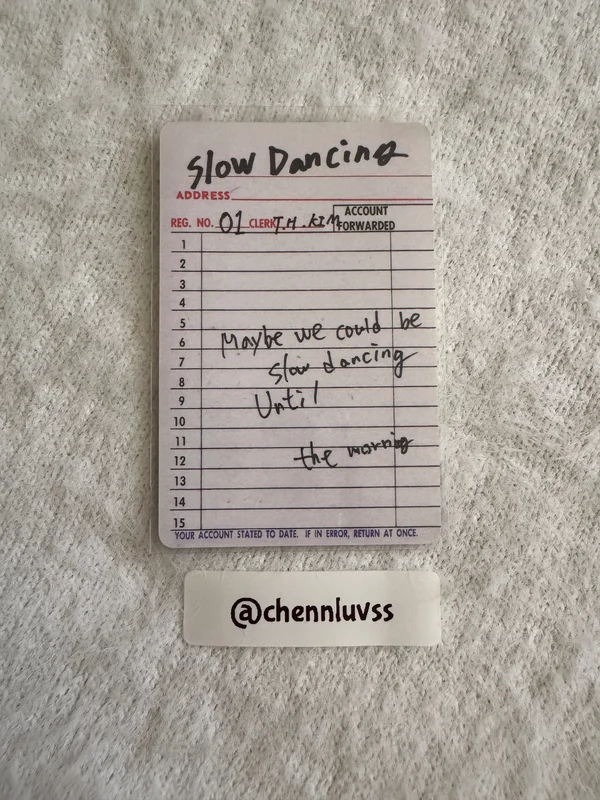 Slow Dancing
ADDRESS
REG. NO. 01 CLERK T.H.KIM ACCOUNT FORWARDED
1
2
3
4
5
6 Maybe we could be
7 slow dancing
8
9 Until
10
11
12 the morning
13
14
15
YOUR ACCOUNT STATED TO DATE. IF IN ERROR, RETURN AT ONCE.
@chennluvss